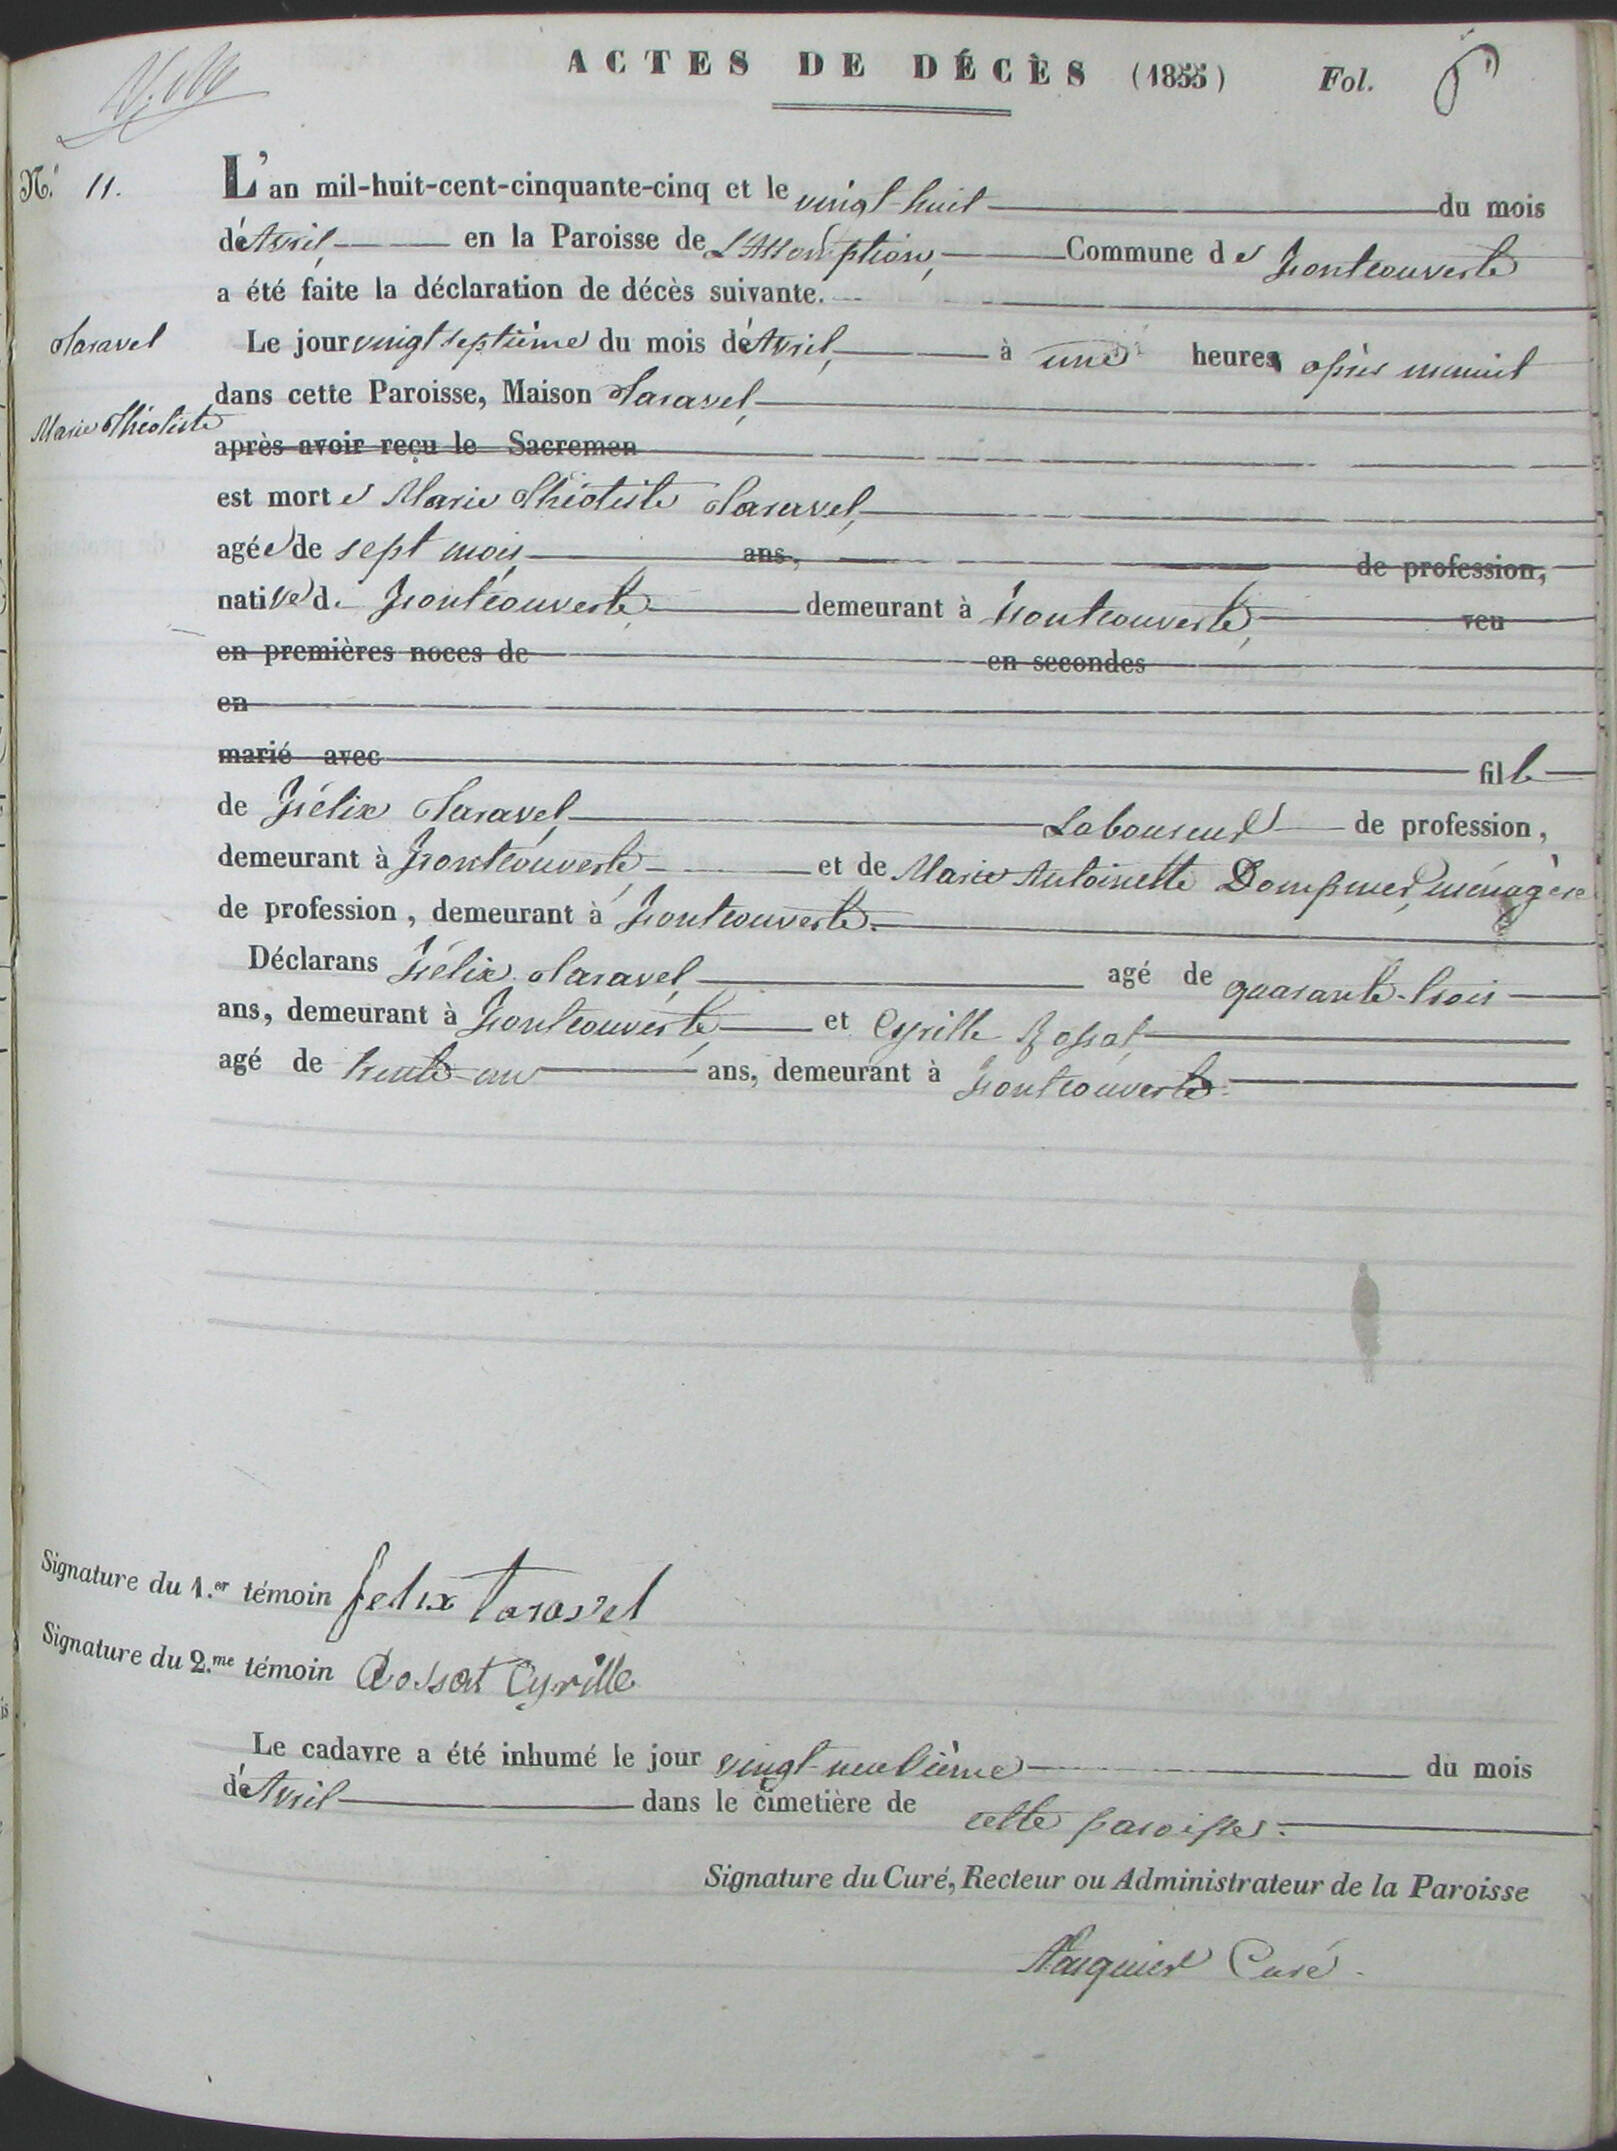 ACTES DE DÉCÈS (1855) Fol. 6
N.° 11. L'an mil-huit-cent-cinquante-cinq et le vingt huit du mois
d'Avril, en la Paroisse de L'Assomption, Commune de Fontcouverte
a été faite la déclaration de décès suivante.
Taravel Le jour vingt septième du mois d'Avril, à une heure après minuit
dans cette Paroisse, Maison Taravel,
Marie Théotiste
après avoir reçu le Sacremen
est morte Marie Théotiste Taravel,
agée de sept mois ans, de profession,
native d. Fontcouverte, demeurant à Fontcouverte, veu
en premières noces de en secondes
en
marié avec fille
de Félix Taravel, Laboureur de profession,
demeurant à Fontcouverte, et de Marie Antoinette Dompnier, ménagère
de profession, demeurant à Fontcouverte.
Déclarans Félix Taravel, agé de quarante-trois
ans, demeurant à Fontcouverte, et Cyrille Bossat,
agé de trente-un ans, demeurant à Fontcouverte.
Signature du 1.er témoin felix taravel
Signature du 2.me témoin Bossat Cyrille
Le cadavre a été inhumé le jour vingt-neuvième du mois
d'Avril dans le cimetière de cette paroisse.
Signature du Curé, Recteur ou Administrateur de la Paroisse
Curé.